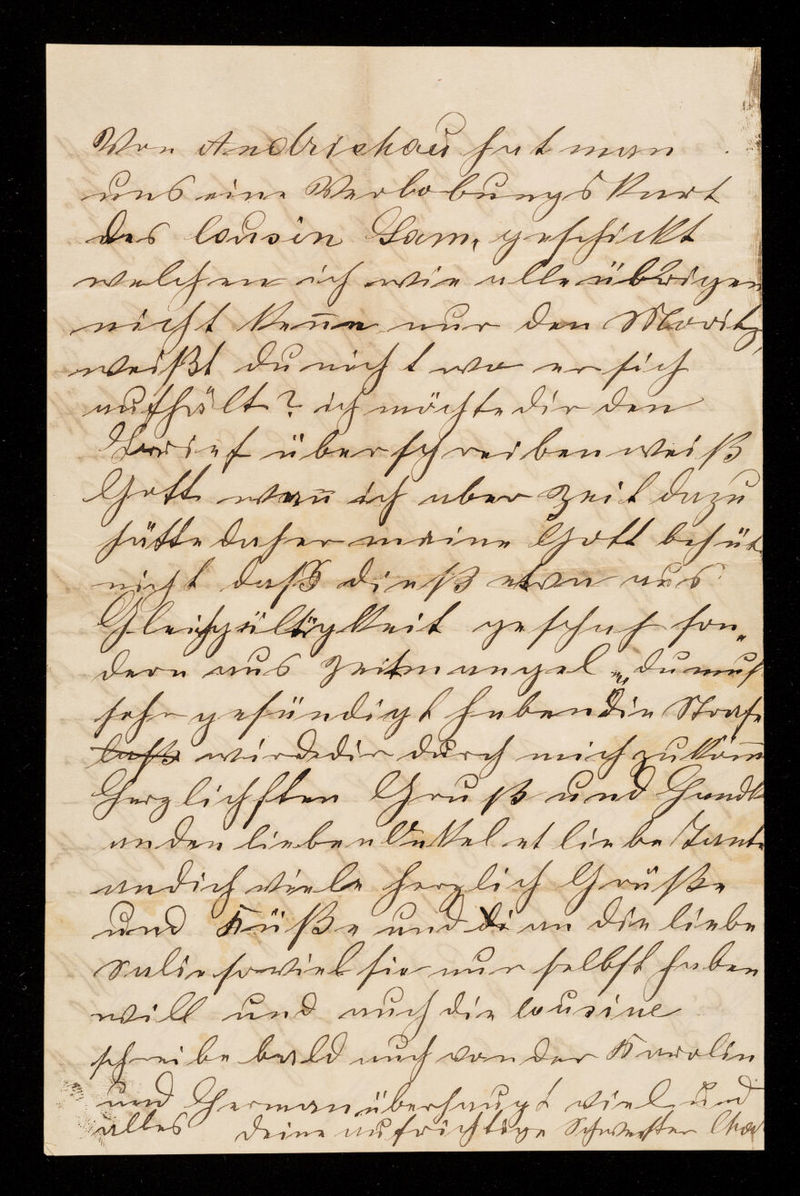 Von Andrichau hat man
uns eine Verlobungskart
des Cousin Sam. geschickt
welchen ich wie alle übrigen
nicht kenne nur den Moritz,
weißt du nicht wo er sich
aufhält? ich möchte dir den
Brief überschreiben weiß
Gott wenn ich aber Zeit dazu
hätte daher meine Gott behüt
nicht daß dieß etwa aus
Gleichgültigkeit geschah son„
dern aus Zeitmangel „du muß
sehr gesündigt haben die Strafe
wird dir durch mich zukomm
Herzlichsten Gruß und Handk
an den lieben Onkel et liebe Tante
an dich viele herzlich Grüße
und Küße und an die liebe
Salie soviel sie nur selbst haben
will und auch die Cousine
schreibe bald auch von der Karolin
und Herman überhaupt viel und
alles deine aufrichtige Schwester